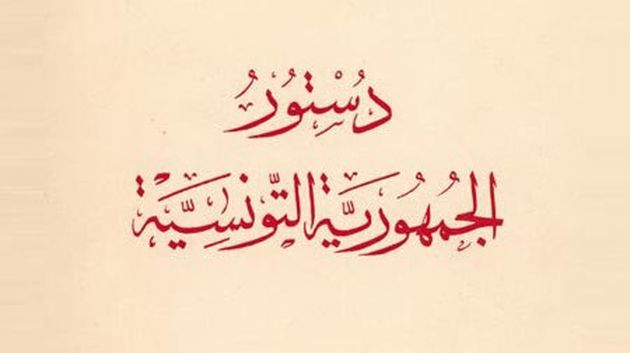 دُسْتُورُ
الجُمُهُورِيَّةِ التُّونِسِيَّةِ